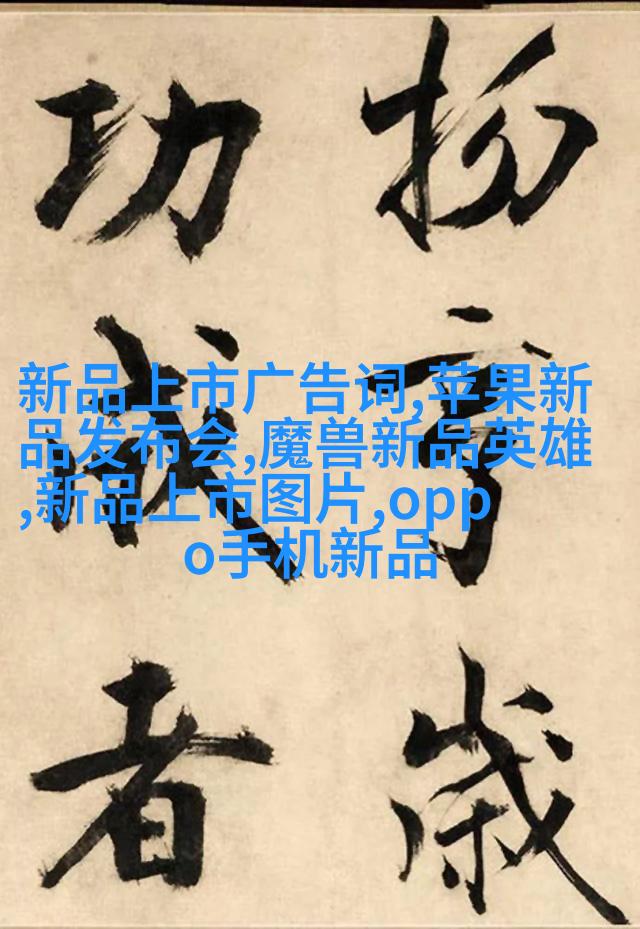 歲
功成者
新品上市广告词,苹果新
品发布会,魔兽新品英雄
,新品上市图片,opp
o手机新品